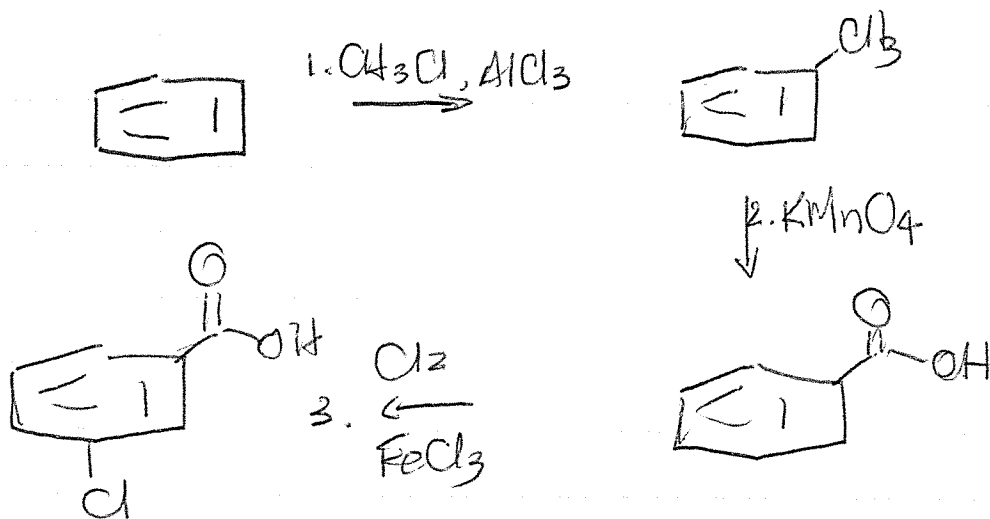 1. CH3Cl, AlCl3
CH3
2. KMnO4
O
OH
O
OH
Cl2
3.
FeCl3
Cl